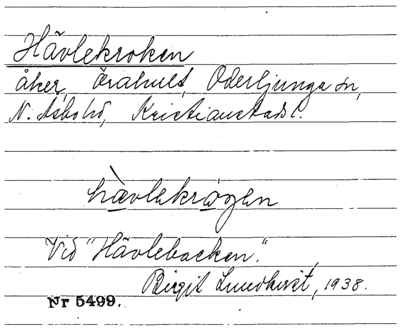 Hävlekroken
åker, Örahult, Oderljunga sn,
N. Åsbo hd, Kristianstads l.
hævlekrogen
Vid "Hävlebacken".
Birgit Lundkvist, 1938.
Nr 5499.